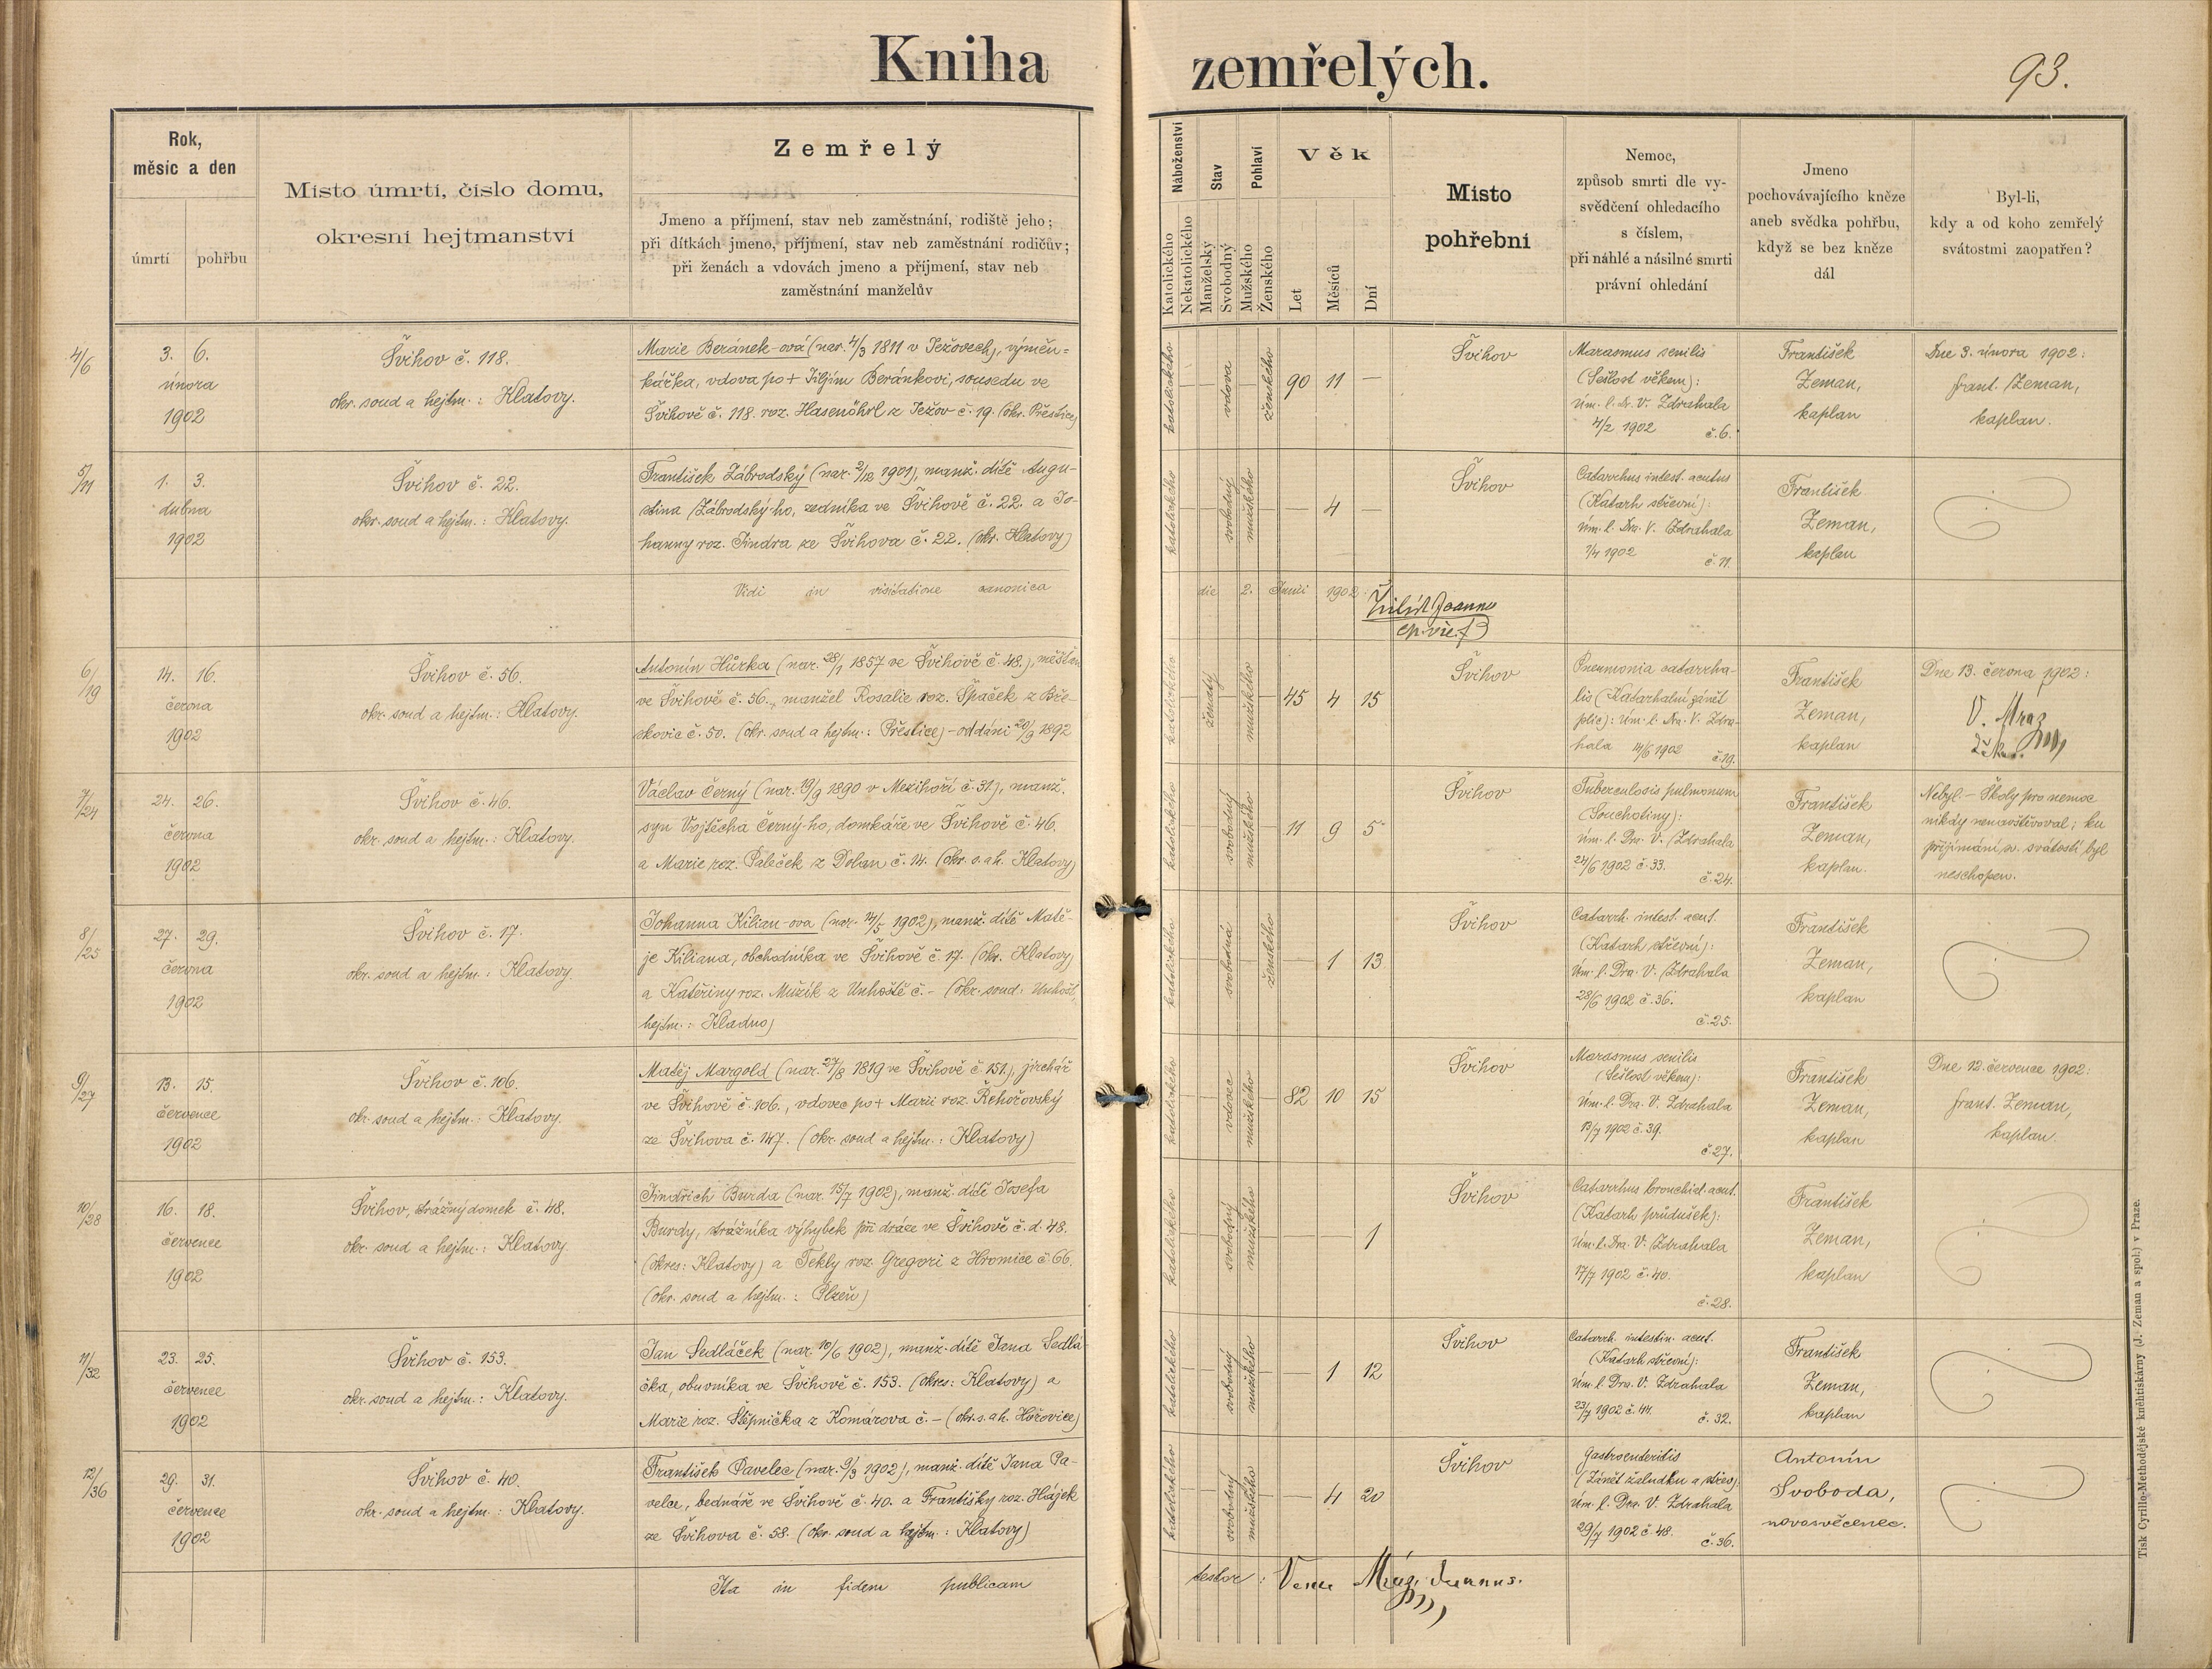 Kniha zemřelých.
93.
Rok,
měsíc a den
úmrtí
pohřbu
Místo úmrtí, číslo domu,
okresní hejtmanství
Zemřelý
Jmeno a příjmení, stav neb zaměstnání, rodiště jeho;
při dítkách jmeno, příjmení, stav neb zaměstnání rodičův;
při ženách a vdovách jmeno a příjmení, stav neb
zaměstnání manželův
Náboženství
Katolického
Nekatolického
Stav
Manželský
Svobodný
Pohlaví
Mužského
Ženského
Věk
Let
Měsíců
Dní
Místo
pohřební
Nemoc,
způsob smrti dle vy-
svědčení ohledacího
s číslem,
při náhlé a násilné smrti
právní ohledání
Jmeno
pochovávajícího kněze
aneb svědka pohřbu,
když se bez kněze
dál
Byl-li,
kdy a od koho zemřelý
svátostmi zaopatřen?
4/6
3. 6.
února
1902
Švihov č. 118.
okr. soud a hejtm.: Klatovy.
Marie Beránek-ová (nar. 4/3 1811 v Ježovech), výměn=
kářka, vdova po + Jiljím Beránkovi, sousedu ve
Švihově č. 118. roz. Hasenöhrl z Ježov č. 19. (okr. Přeštice)
katolického
—
—
vdova
—
ženského
90 11 —
Švihov
Marasmus senilis
(Sešlost věkem):
úm. l. Dr. V. Zdrahala
4/2 1902 č. 6.
František
Zeman,
kaplan
Dne 3. února 1902:
frant. Zeman,
kaplan.
5/11
1. 3.
dubna
1902
Švihov č. 22.
okr. soud a hejtm.: Klatovy.
František Zábrodský (nar. 2/12 1901), manž. dítě Augu-
stina Zábrodský-ho, zedníka ve Švihově č. 22. a Jo-
hanny roz. Jindra ze Švihova č. 22. (okr. Klatovy)
katolického
—
—
svobodný
mužského
—
— 4 —
Švihov
Catarrhus intest. acutus
(Katarh střevní):
úm. l. Dra. V. Zdrahala
1/4 1902 č. 11.
František
Zeman,
kaplan
Vidi in visitatione canonica die 2. Junii 1902.
6/19
14. 16.
června
1902
Švihov č. 56.
okr. soud a hejtm.: Klatovy.
Antonín Hůrka (nar. 28/1 1857 ve Švihově č. 48.), měšťan
ve Švihově č. 56., manžel Rosalie roz. Špaček z Bře-
skovic č. 50. (okr. soud a hejtm.: Přeštice) - oddáni 20/9 1892
katolického
—
ženatý
—
mužského
—
45 4 15
Švihov
Pneumonia catarrha-
lis (Katarhalní zánět
plic): úm. l. Dra. V. Zdra-
hala 14/6 1902 č. 19.
František
Zeman,
kaplan
Dne 13. června 1902:
V. Mraz
7/24
24. 26.
června
1902
Švihov č. 46.
okr. soud a hejtm.: Klatovy.
Václav Černý (nar. 19/9 1890 v Mezihoří č. 31), manž.
syn Vojtěcha Černý-ho, domkáře ve Švihově č. 46.
a Marie roz. Paleček z Dolan č. 14. (okr. s. a h. Klatovy)
katolického
—
—
svobodný
mužského
—
11 9 5
Švihov
Tuberculosis pulmonum
(Souchotiny):
úm. l. Dra. V. Zdrahala
24/6 1902 č. 33.
č. 24.
František
Zeman,
kaplan.
Nebyl. - Školy pro nemoc
nikdy nenavštěvoval; ku
přijímání sv. svátostí byl
neschopen.
8/25
27. 29.
června
1902
Švihov č. 17.
okr. soud a hejtm.: Klatovy.
Johanna Kilian-ova (nar. 14/5 1902), manž. dítě Matě-
je Kiliana, obchodníka ve Švihově č. 17. (okr. Klatovy)
a Kateřiny roz. Mužík z Unhoště č. - (okr. soud: Unhošť,
hejtm.: Kladno)
katolického
—
—
svobodná
—
ženského
— 1 13
Švihov
Catarrh. intest. acut.
(Katarh střevní):
úm. l. Dra. V. Zdrahala
28/6 1902 č. 36.
č. 25.
František
Zeman,
kaplan
9/27
13. 15.
července
1902
Švihov č. 106.
okr. soud a hejtm.: Klatovy.
Matěj Margold (nar. 27/8 1819 ve Švihově č. 151.), jirchář
ve Švihově č. 106., vdovec po + Marii roz. Řehořovský
ze Švihova č. 147. (okr. soud a hejtm.: Klatovy)
katolického
—
—
vdovec
mužského
—
82 10 15
Švihov
Marasmus senilis
(Sešlost věkem):
úm. l. Dra. V. Zdrahala
13/7 1902 č. 39.
č. 27.
František
Zeman,
kaplan
Dne 12. července 1902:
frant. Zeman,
kaplan.
10/28
16. 18.
července
1902
Švihov, strážný domek č. 48.
okr. soud a hejtm.: Klatovy.
Jindřich Burda (nar. 15/7 1902), manž. dítě Josefa
Burdy, strážníka výhybek při dráze ve Švihově č. d. 48.
(okres: Klatovy) a Tekly roz. Gregori z Hromice č. 66.
(okr. soud a hejtm.: Plzeň)
katolického
—
—
svobodný
mužského
—
— — 1
Švihov
Catarrhus bronchial. acut.
(Katarh průdušek):
úm. l. Dra. V. Zdrahala
17/7 1902 č. 40.
č. 28.
František
Zeman,
kaplan
11/32
23. 25.
července
1902
Švihov č. 153.
okr. soud a hejtm.: Klatovy.
Jan Sedláček (nar. 10/6 1902), manž. dítě Jana Sedlá-
čka, obuvníka ve Švihově č. 153. (okres: Klatovy) a
Marie roz. Štěpnička z Komárova č. - (okr. s. a h. Hořovice)
katolického
—
—
svobodný
mužského
—
— 1 12
Švihov
Catarrh. intestin. acut.
(Katarh střevní):
úm. l. Dra. V. Zdrahala
23/7 1902 č. 44. č. 32.
František
Zeman,
kaplan
12/36
29. 31.
července
1902
Švihov č. 40.
okr. soud a hejtm.: Klatovy.
František Pavelec (nar. 9/3 1902), manž. dítě Jana Pa-
velce, bednáře ve Švihově č. 40. a Františky roz. Hájek
ze Švihova č. 58. (okr. soud a hejtm.: Klatovy)
katolického
—
—
svobodný
mužského
—
— 4 20
Švihov
Gastroenteritis
(Zánět žaludku a střev):
úm. l. Dra. V. Zdrahala
29/7 1902 č. 48. č. 36.
Antonín
Svoboda,
novosvěcenec.
Ita in fidem publicam testor:
Tisk Cyrillo-Methodějské kněhtiskárny (J. Zeman a spol.) v Praze.